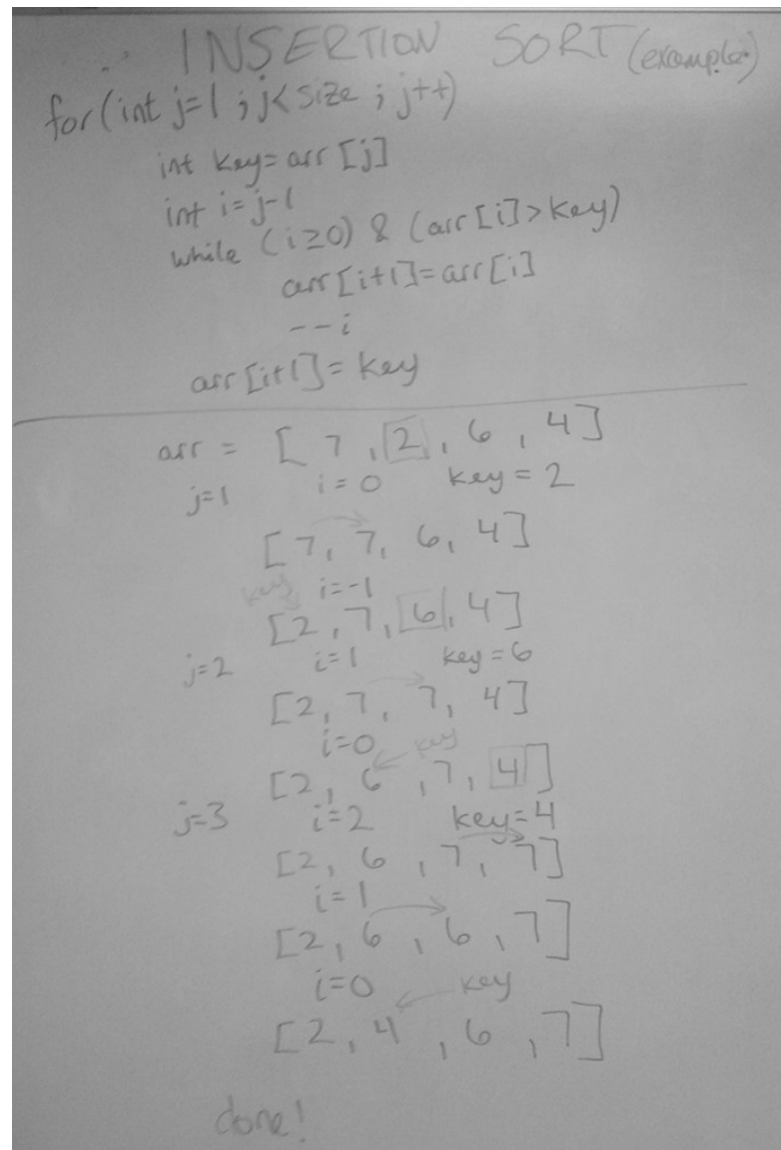 INSERTION SORT (example)
for(int j=1 ; j<size ; j++)
int key=arr [j]
int i=j-1
while (i≥0) & (arr[i]>key)
arr[i+1]=arr[i]
--i
arr[i+1]=key
arr = [ 7 , 2 , 6 , 4 ]
j=1 i=0 key=2
[7, 7, 6, 4]
key i=-1
[2, 7, 6, 4]
j=2 i=1 key=6
[2, 7, 7, 4]
i=0 key
[2, 6 , 7, 4]
j=3 i=2 key=4
[2, 6 , 7, 7]
i=1
[2, 6 , 6 , 7]
i=0 key
[2, 4 , 6 , 7]
done!